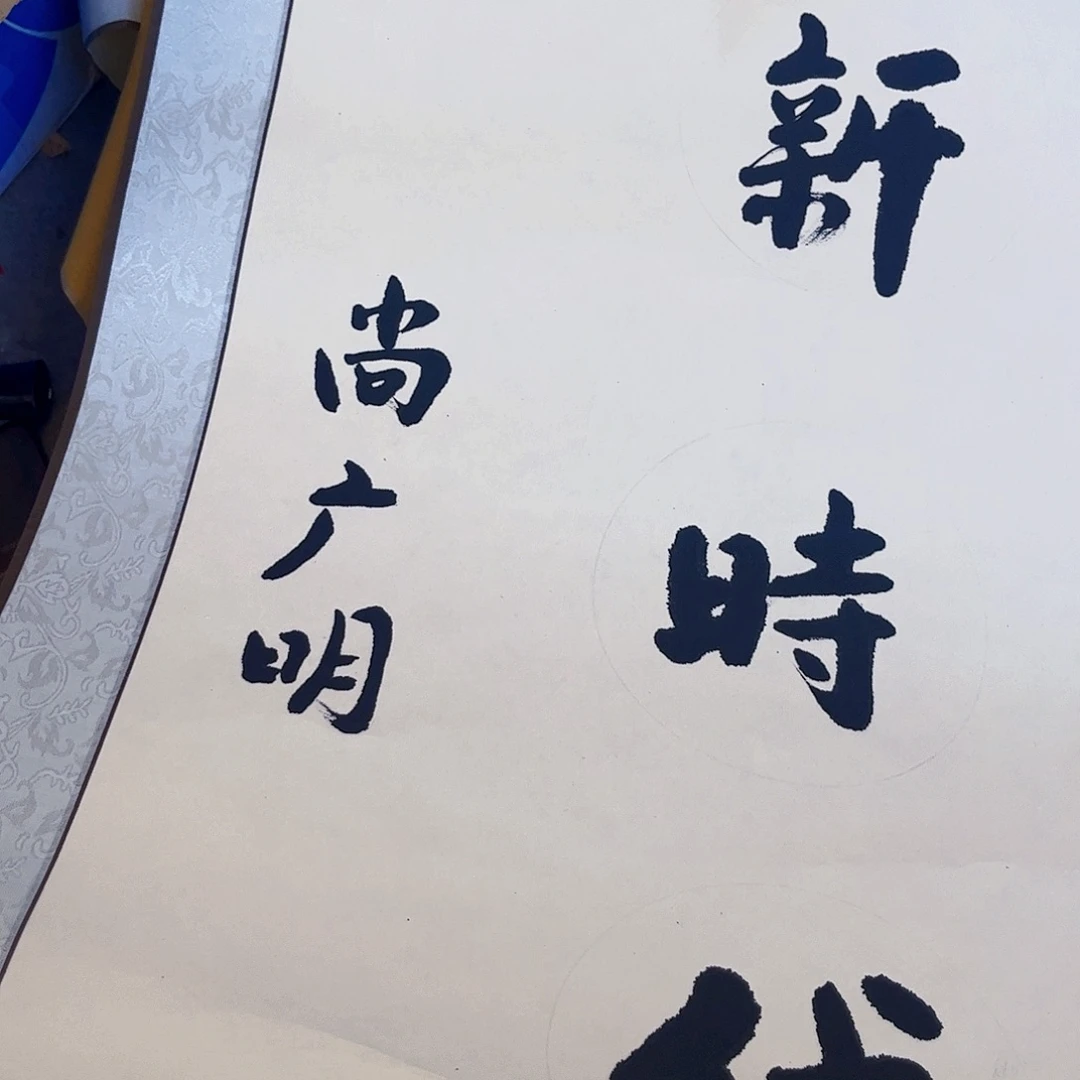 新時代
尚广明